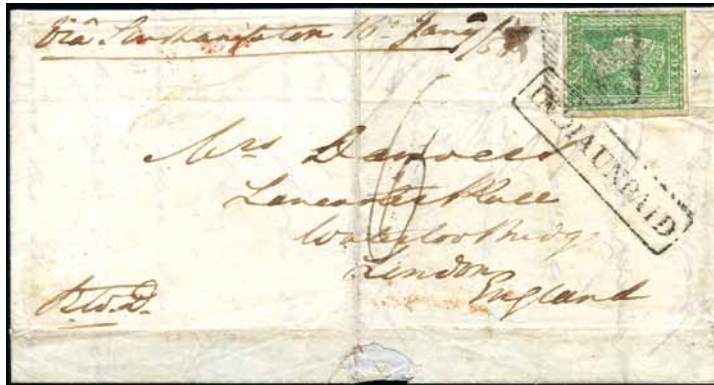 Via Southampton 16th Jany
INDIA
INDIA UNPAID
Mrs Danvers
Lancaster Place
Waterloo Bridge
London
England
6